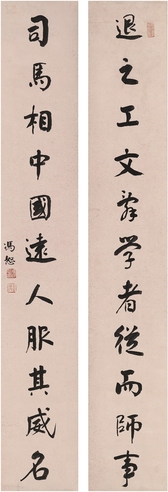 退之工文辞学者從而師事
司馬相中國遠人服其威名
馮恕